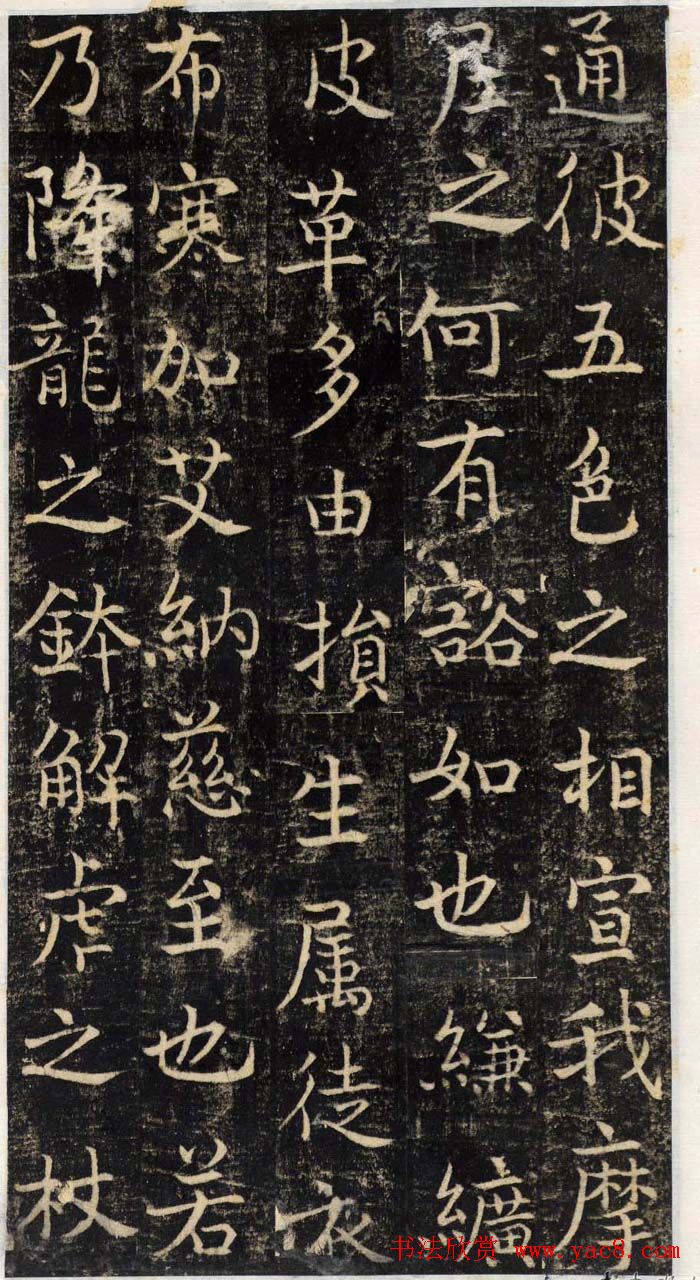 通彼五色之相宣我摩
之何有豁如也縑纊
皮革多由損生属徒衣
布寒加艾納慈至也若
乃降龍之鉢解虎之杖
书法欣赏 www.yac8.com